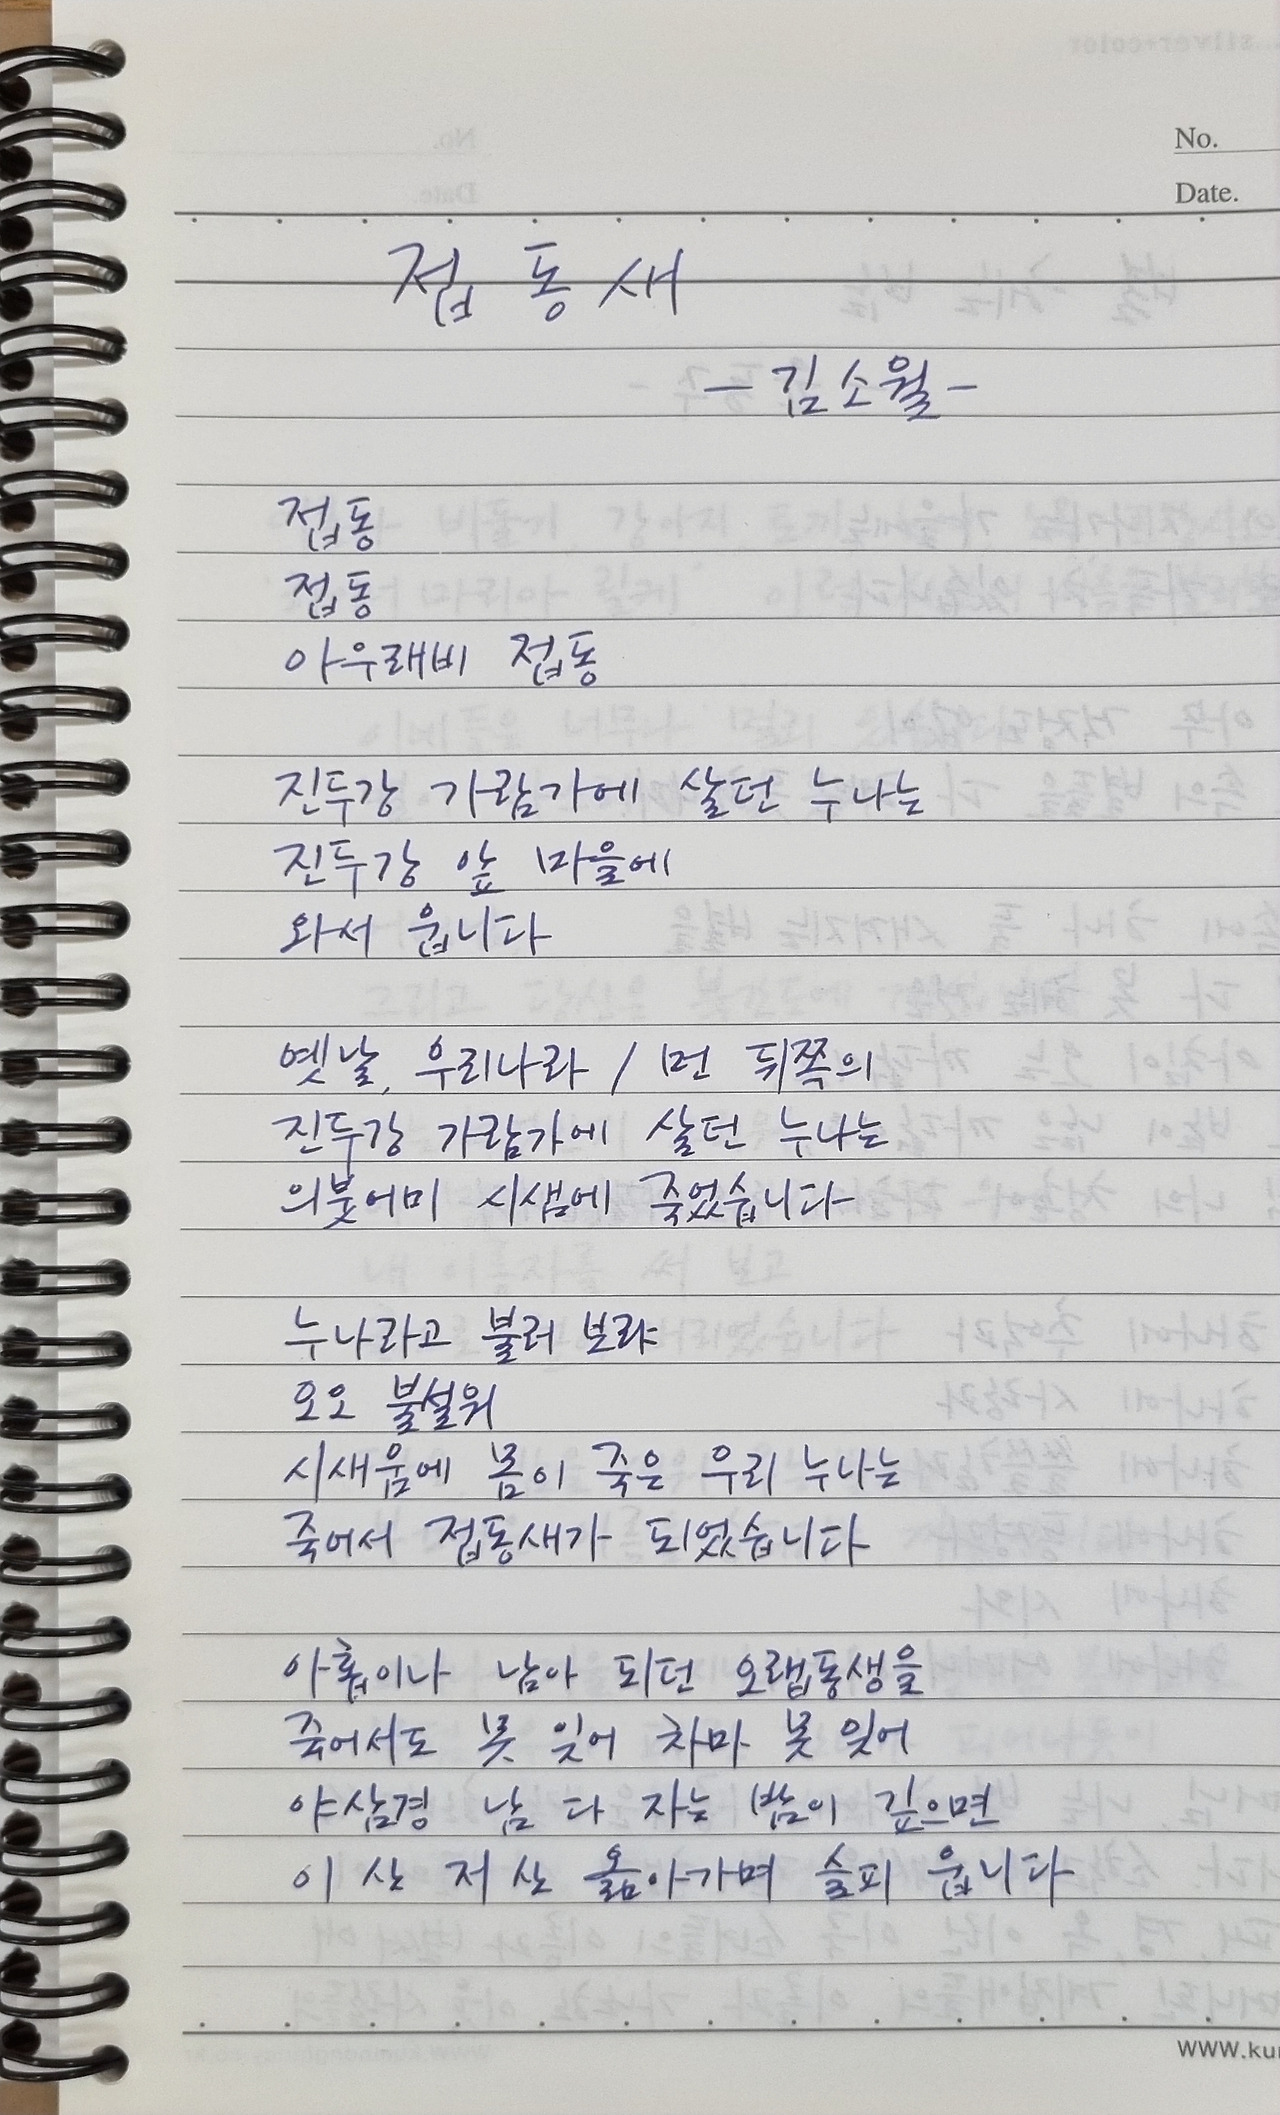 No.
Date.
접동새
- 김소월 -
접동
접동
아우래비 접동
진두강 가람가에 살던 누나는
진두강 앞 마을에
와서 웁니다
옛날, 우리나라 / 먼 뒤쪽의
진두강 가람가에 살던 누나는
의붓어미 시샘에 죽었습니다
누나라고 불러 보랴
오오 불설워
시새움에 몸이 죽은 우리 누나는
죽어서 접동새가 되었습니다
아홉이나 남아 되던 오랩동생을
죽어서도 못 잊어 차마 못 잊어
야삼경 남 다 자는 밤이 깊으면
이 산 저 산 옮아가며 슬피 웁니다